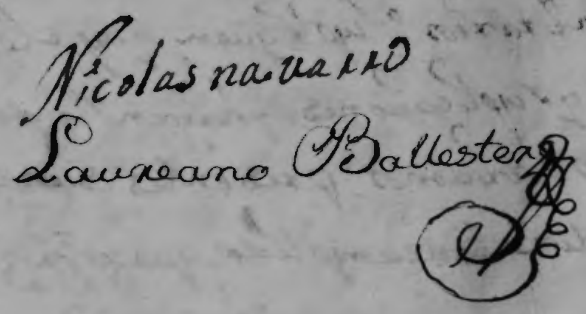 Nicolas navarro
Laureano Ballester